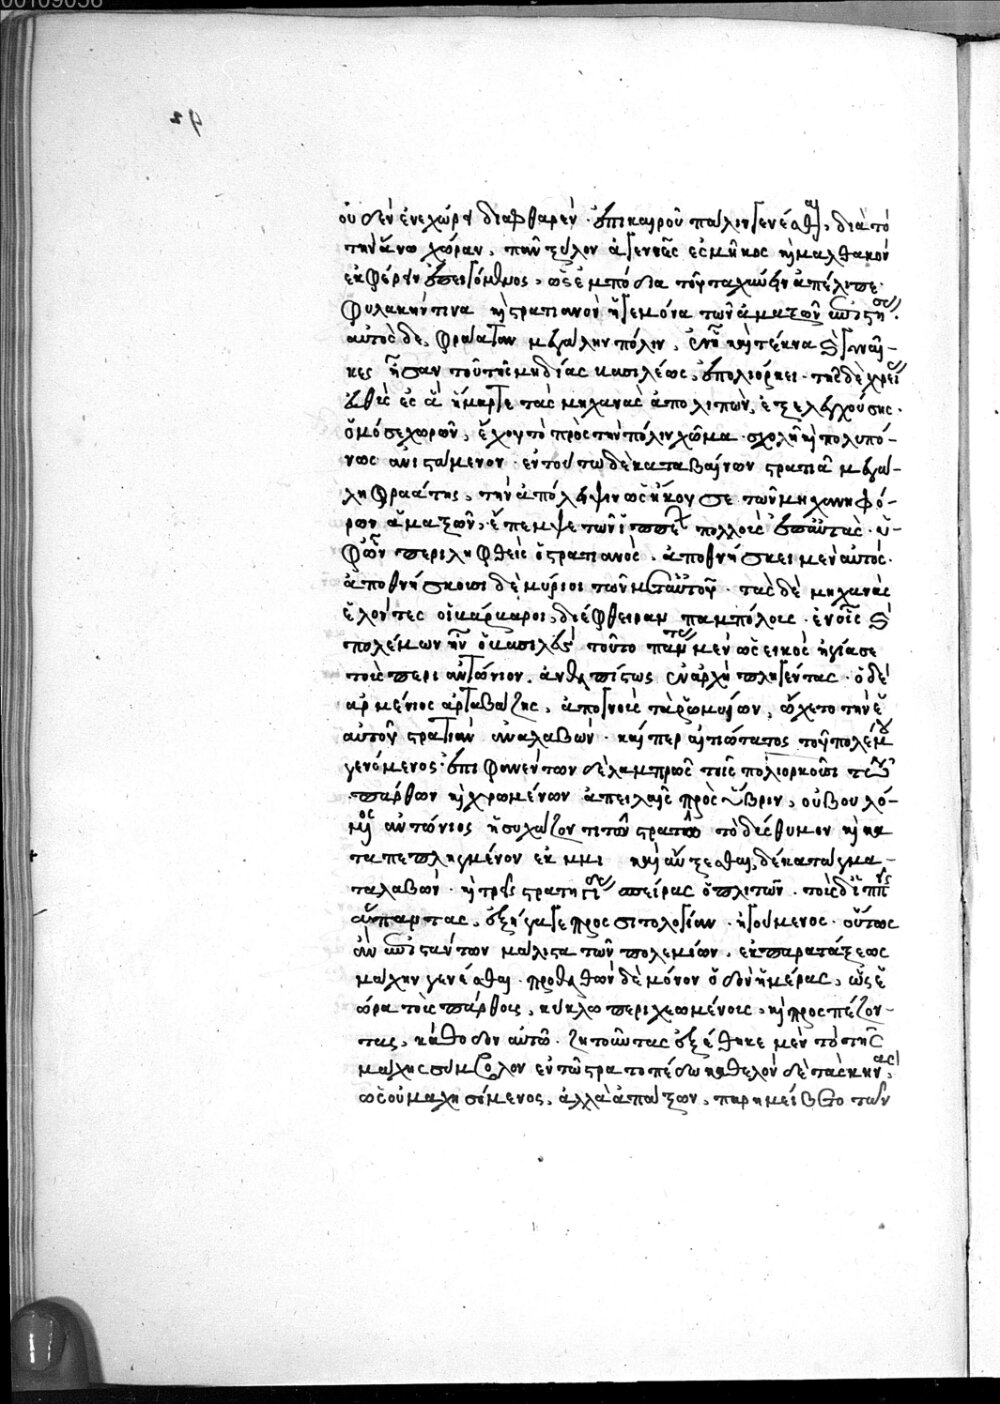 οὐδὲν ἐνεχώρει διαφθαρὲν ἐπικαίρου πάλιν γενέσθαι, διὰ τὸ
τὴν ἄνω χώραν, πᾶν ξύλον ἀγεννὲς ἐς μῆκος καὶ μαλθακὸν
ἐκφέρειν ἐπειγόμενος, ὡς ἐμπόδια τοῦ ταχύνειν ἀπέλιπε.
φυλακήν τινα καὶ στρατιανὸν ἡγεμόνα τῶν ἁμαξῶν ἐπιστήσας.
αὐτὸς δὲ, φραάταν μεγάλην πόλιν, ἐν ᾗ καὶ τέκνα καὶ γυναῖ-
κες ἦσαν τοῦ τῆς μηδίας βασιλέως, ἐπολιόρκει. τῆς δὲ χρείας
εὐθὺς ἐς ἃ ἥμαρτε τὰς μηχανὰς ἀπολιπὼν, ἐξελεγχούσης.
ὁμόσε χωρῶν, ἔχου τὸ πρὸς τὴν πόλιν χῶμα. σχολῇ καὶ πολυπό-
νως ἀνιστάμενον. ἐν τούτω δὲ καταβαίνων στρατιᾶ μεγά-
λη φραάτης, τὴν ἀπόλειψιν ὡς ἤκουσε τῶν μηχανηφό-
ρων ἁμαξῶν, ἔπεμψε τῶν ἱππέων πολλοὺς ἐπ' αὐτάς. ὑ-
φ' ὧν περιληφθεὶς ὁ στρατιανὸς. ἀποθνήσκει μὲν αὐτὸς.
ἀποθνήσκουσι δὲ μύριοι τῶν μετ' αὐτοῦ. τὰς δὲ μηχανὰς
ἑλόντες οἱ βάρβαροι, διέφθειραν παμπόλους. ἐν οἷς καὶ
πολέμων ἦν ὁ βασιλεύς τοῦτο πάντας μὲν ὡς εἰκὸς ἠνίασε
τοὺς περὶ ἀντώνιον. ἀνελπίστως ἐν ἀρχῇ πληγέντας. ὁ δὲ
ἀρμένιος ἀρταβάζης, ἀπογνοὺς τὰ ῥωμαίων, ὤχετο τὴν ἑ
αὐτοῦ στρατιὰν ἀναλαβὼν. καίπερ αἰτιώτατος τοῦ πολέμου
γενόμενος. ἐπιφανέντων δὲ λαμπρῶς τοῖς πολιορκοῦσι τῶν
πάρθων καὶ χρωμένων ἀπειλαῖς πρὸς ὕβριν, οὐ βουλό-
μενος ἀντώνιος ἡσυχάζοντι τῶ στρατῶ τὸ δύσθυμον καὶ κα
ταπεπληγμένον ἐμμένειν καὶ αὔξεσθαι, δέκα τάγμα-
τα λαβὼν. καὶ τρεῖς στρατηγίδας σπείρας ὁπλιτῶν. τοὺς δ' ἱππεῖς
ἅπαντας, ἐξήγαγε πρὸς σιτολογίαν. ἡγούμενος. οὕτως
ἂν ἐπισπάντων μάλιστα τῶν πολεμίων. ἐκ παρατάξεως
μάχην γενέσθαι. προελθὼν δὲ μόνον ὁδὸν ἡμέρας, ὡς ἑ
ώρα τοὺς πάρθους, κύκλω περιχεομένους, καὶ προσπέζον-
τας, καθ' ὁδὸν αὐτῶ. ζητοῦντας ἐξέθηκε μὲν τὸ τῆς
μάχης σύμβολον ἐν τῶ στρατοπέδω καθελὼν δὲ τὰς σκηνάς,
ὡς οὐ μαχησόμενος, ἀλλὰ ἀπάξων, παρημείβετο τῶν